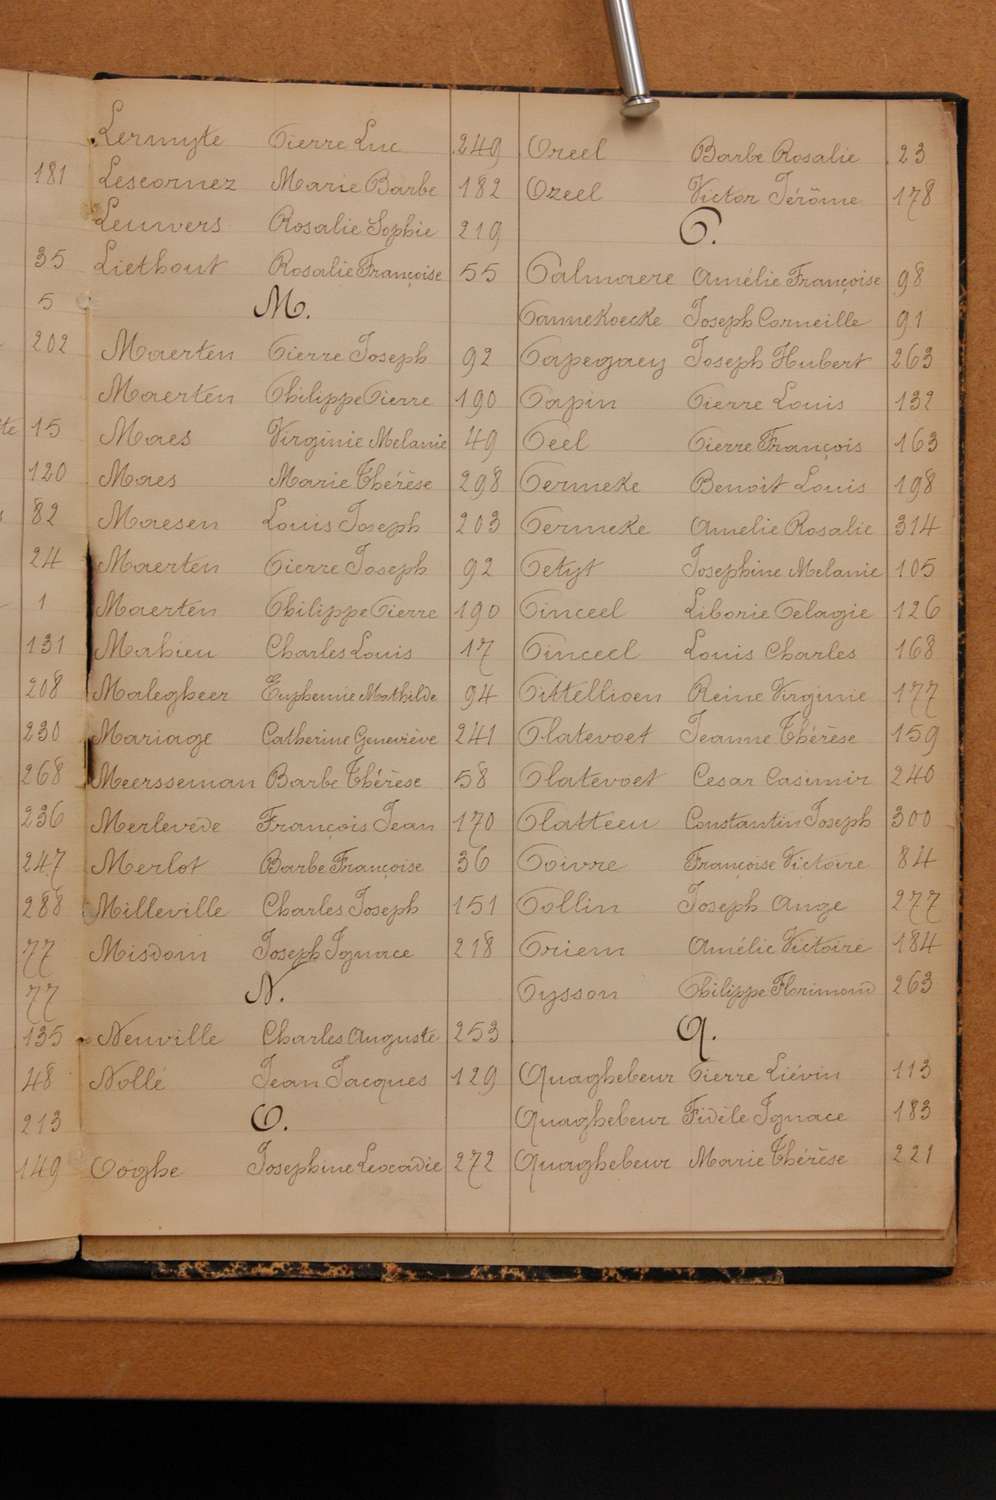 181
35
5
202
te 15
120
82
24
1
131
208
230
268
236
247
288
77
77
135
48
213
149
Lermyte Pierre Luc 249
Lescornez Marie Barbe 182
Leuwers Rosalie Sophie 219
Liethout Rosalie Françoise 55
M.
Maerten Pierre Joseph 92
Maerten Philippe Pierre 190
Maes Virginie Melanie 49
Maes Marie Thérèse 298
Maesen Louis Joseph 203
Maerten Pierre Joseph 92
Maerten Philippe Pierre 190
Mahieu Charles Louis 17
Malegheer Euphemie Mathilde 94
Mariage Catherine Geneviève 241
Meersseman Barbe Thérèse 58
Merlevède François Jean 170
Merlot Barbe Françoise 36
Milleville Charles Joseph 151
Misdom Joseph Ignace 218
N.
Neuville Charles Auguste 253
Nollé Jean Jacques 129
O.
Ooghe Josephine Leocadie 272
Oreel Barbe Rosalie 23
Ozeel Victor Jérôme 178
P.
Palmaere Amélie Françoise 98
Pannekoecke Joseph Corneille 91
Papegaey Joseph Hubert 263
Papin Pierre Louis 132
Peel Pierre François 163
Permeke Benoit Louis 198
Permeke Amelie Rosalie 314
Petyt Josephine Melanie 105
Pinceel Liborie Pelagie 126
Pinceel Louis Charles 168
Pittellioen Reine Virginie 177
Platevoet Jeanne Thérèse 159
Platevoet Cesar Casimir 240
Platteeu Constantin Joseph 300
Poivre Françoise Victoire 84
Pollin Joseph Ange 277
Priem Amélie Victoire 184
Pysson Philippe Florimond 263
Q.
Quaghebeur Pierre Liévin 113
Quaghebeur Fidèle Ignace 183
Quaghebeur Marie Thérèse 221